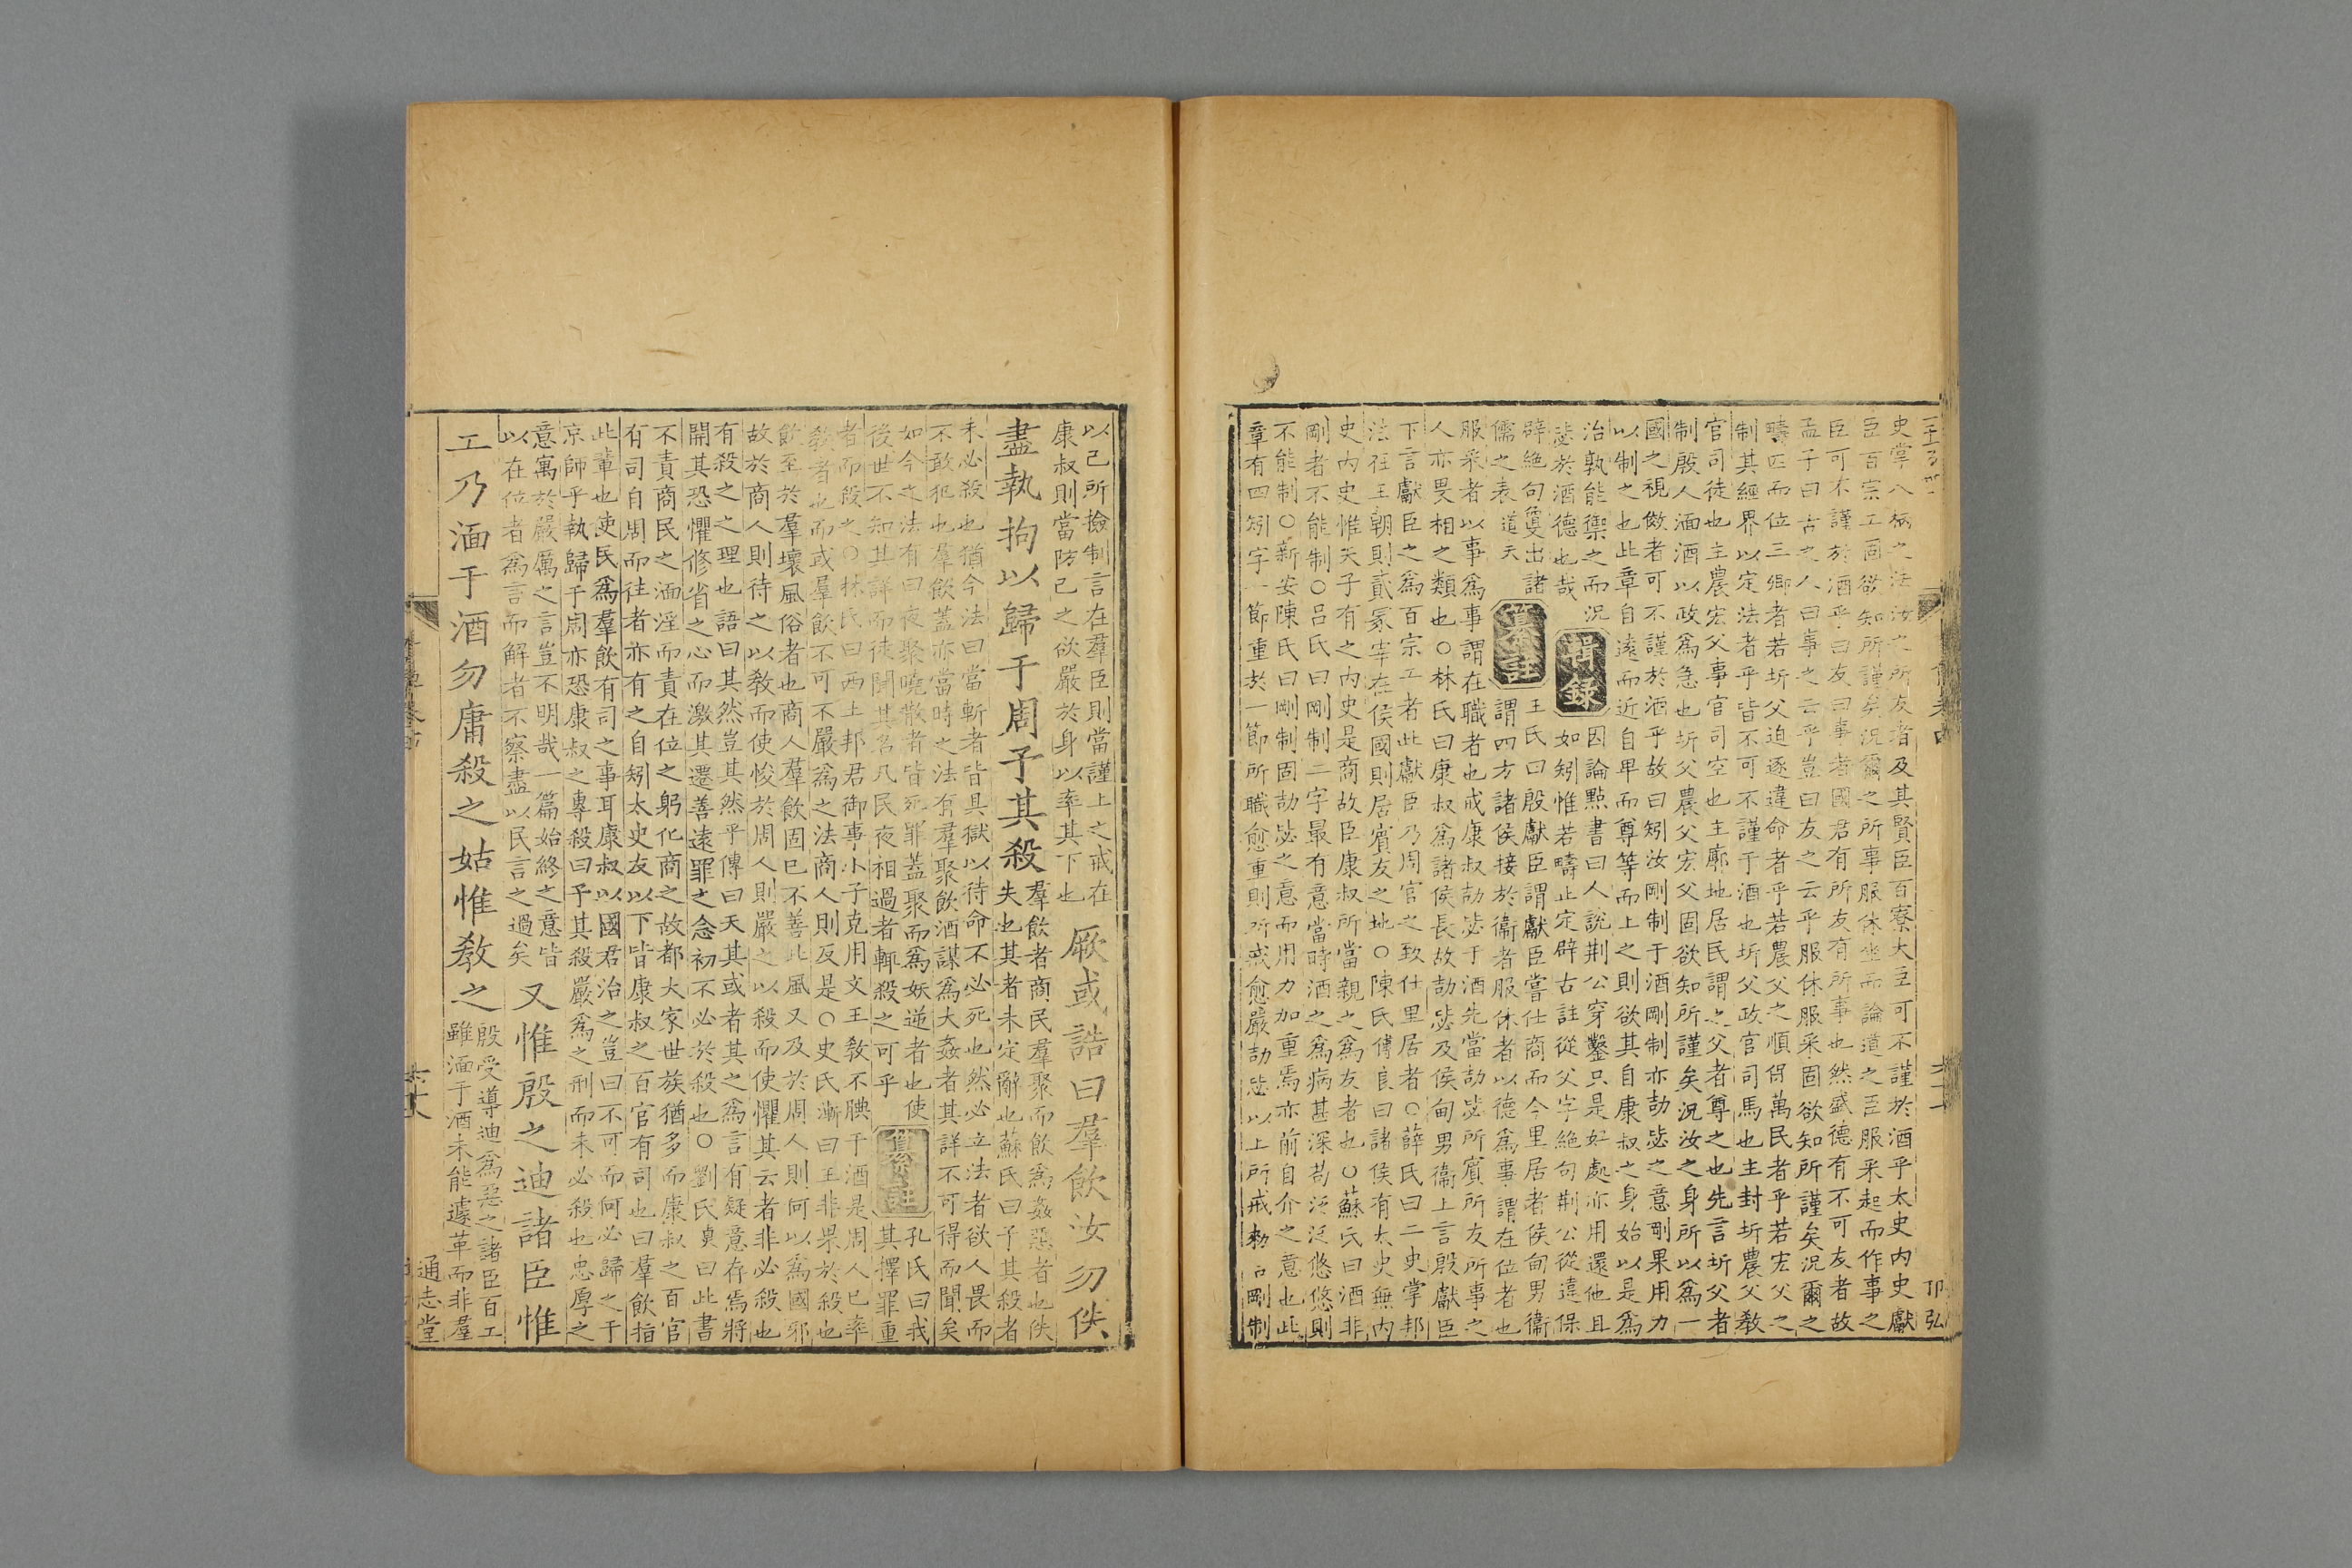 史掌八柄之法汝之所友者及其賢臣百寮大臣可不謹於酒乎太史内史獻
臣百宗工固欲知所謹矣況爾之所事服休坐而論道之臣服采起而作事之
臣可不謹於酒乎曰友曰事者國君有所友有所事也然盛德有不可友者故
孟子曰古之人曰事之云乎豈曰友之云乎服休服采固欲知所謹矣況爾之
疇匹而位三卿者若圻父迫逐違命者乎若農父之順保萬民者乎若宏父之
制其經界以定法者乎皆不可不謹于酒也圻父政官司馬也主封圻農父教
官司徒也主農宏父事官司空也主廓地居民謂之父者尊之也先言圻父者
制殷人湎酒以政爲急也圻父農父宏父固欲知所謹矣況汝之身所以爲一
國之視傚者可不謹於酒乎故曰矧汝剛制于酒剛制亦劼毖之意剛果用力
以制之也此章自遠而近自卑而尊等而上之則欲其自康叔之身始以是爲
治孰能禦之而況
毖於酒德也哉
輯錄
因論點書曰人說荆公穿鑿只是好處亦用還他且
如矧惟若疇止定辟古註從父字絶句荆公從違保
辟絶句敻出諸
儒之表道夫
纂註
王氏曰殷獻臣謂獻臣嘗仕商而今里居者侯甸男衞
謂四方諸侯接於衞者服休者以德爲事謂在位者也
服采者以事爲事謂在職者也戒康叔劼毖于酒先當劼毖所賓所友所事之
人亦畏相之類也○林氏曰康叔爲諸侯長故劼毖及侯甸男衞上言殷獻臣
下言獻臣之爲百宗工者此獻臣乃周官之致仕里居者○薛氏曰二史掌邦
法在王朝則貳冢宰在侯國則居賓友之地○陳氏傅良曰諸侯有太史無内
史内史惟天子有之内史是商故臣康叔所當親之爲友者也○蘇氏曰酒非
剛者不能制○呂氏曰剛制二字最有意當時酒之爲病甚深苟泛泛悠悠則
不能制○新安陳氏曰剛制固劼毖之意而用力加重焉亦前自介之意也此
章有四矧字一節重於一節所職愈重則所戒愈嚴劼毖以上所戒勑言剛制
卭弘
以己所撿制言在羣臣則當謹上之戒在
康叔則當防己之欲嚴於身以率其下也
厥或誥曰羣飲汝勿佚
盡執拘以歸于周予其殺
羣飲者商民羣聚而飲爲姦惡者也佚
失也其者未定辭也蘇氏曰予其殺者
未必殺也猶今法曰當斬者皆具獄以待命不必死也然必立法者欲人畏而
不敢犯也羣飲蓋亦當時之法有羣聚飲酒謀爲大姦者其詳不可得而聞矣
如今之法有曰夜聚曉散者皆死罪蓋聚而爲妖逆者也使
後世不知其詳而徒聞其名凡民夜相過者輒殺之可乎
纂註
孔氏曰我
其擇罪重
者而殺之○林氏曰西土邦君御事小子克用文王教不腆于酒是周人已率
教者也而或羣飲不可不嚴爲之法商人則反是○史氏漸曰王非果於殺也
飲至於羣壞風俗者也商人羣飲固已不善此風又及於周人則何以爲國邪
故於商人則待之以教而使悛於周人則嚴之以殺而使懼其云者非必殺也
有殺之之理也語曰其然豈其然乎傳曰天其或者其之爲言有疑意存焉將
開其恐懼修省之心而激其遷善遠罪之念初不必於殺也○劉氏真曰此書
不責商民之湎淫而責在位之躬化商之故都大家世族猶多而康叔之百官
有司自周而往者亦有之自矧太史友以下皆康叔之百官有司也曰羣飲指
此輩也使民爲羣飲有司之事耳康叔以國君治之豈曰不可而何必歸之于
京師乎執歸于周亦恐康叔之專殺曰予其殺嚴爲之刑而未必殺也忠厚之
意寓於嚴厲之言豈不明哉一篇始終之意皆
以在位者爲言而解者不察盡以民言之過矣
又惟殷之迪諸臣惟
工乃湎于酒勿庸殺之姑惟教之
殷受導迪爲惡之諸臣百工
雖湎于酒未能遽革而非羣
通志堂